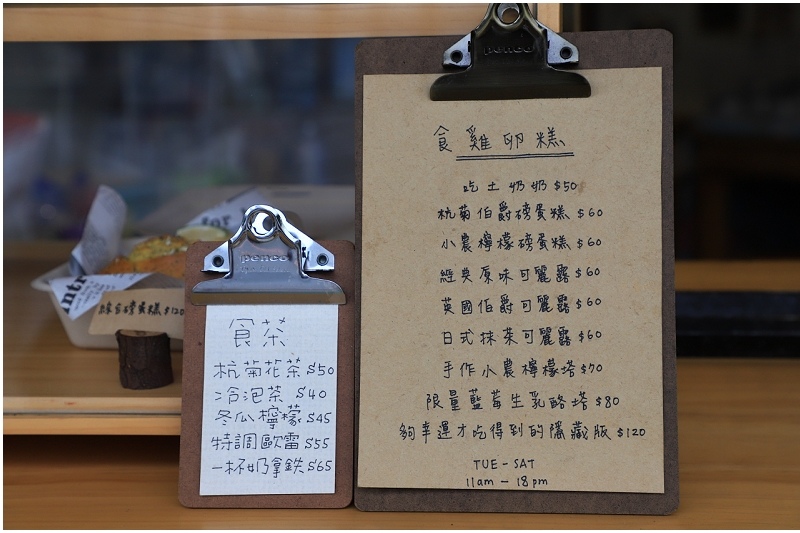 penco
食雞卵糕
吃土奶奶 $50
杭菊伯爵磅蛋糕 $60
小農檸檬磅蛋糕 $60
經典原味可麗露 $60
英國伯爵可麗露 $60
日式抹茶可麗露 $60
手作小農檸檬塔 $70
限量藍莓生乳酪塔 $80
夠幸運才吃得到的隱藏版 $120
TUE - SAT
11am - 18pm
penco
食茶
杭菊花茶 $50
冷泡茶 $40
冬瓜檸檬 $45
特調歐蕾 $55
一杯奶拿鉄 $65
磅蛋糕 $120